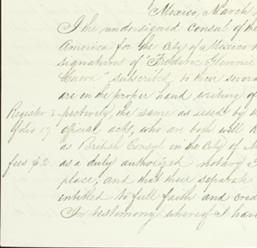 Mexico, March
I the undersigned Consul of the
America for the City of Mexico
signatures of Frederic
subscribed, to their several
are in the proper hand writing of
Register 2 pectively, the same as used by
official acts, who are both well
as British Consul in the City of M
fees $2. as a duly authorized notary
place; and that their separate
entitled to full faith and cred
In testimony whereof I have